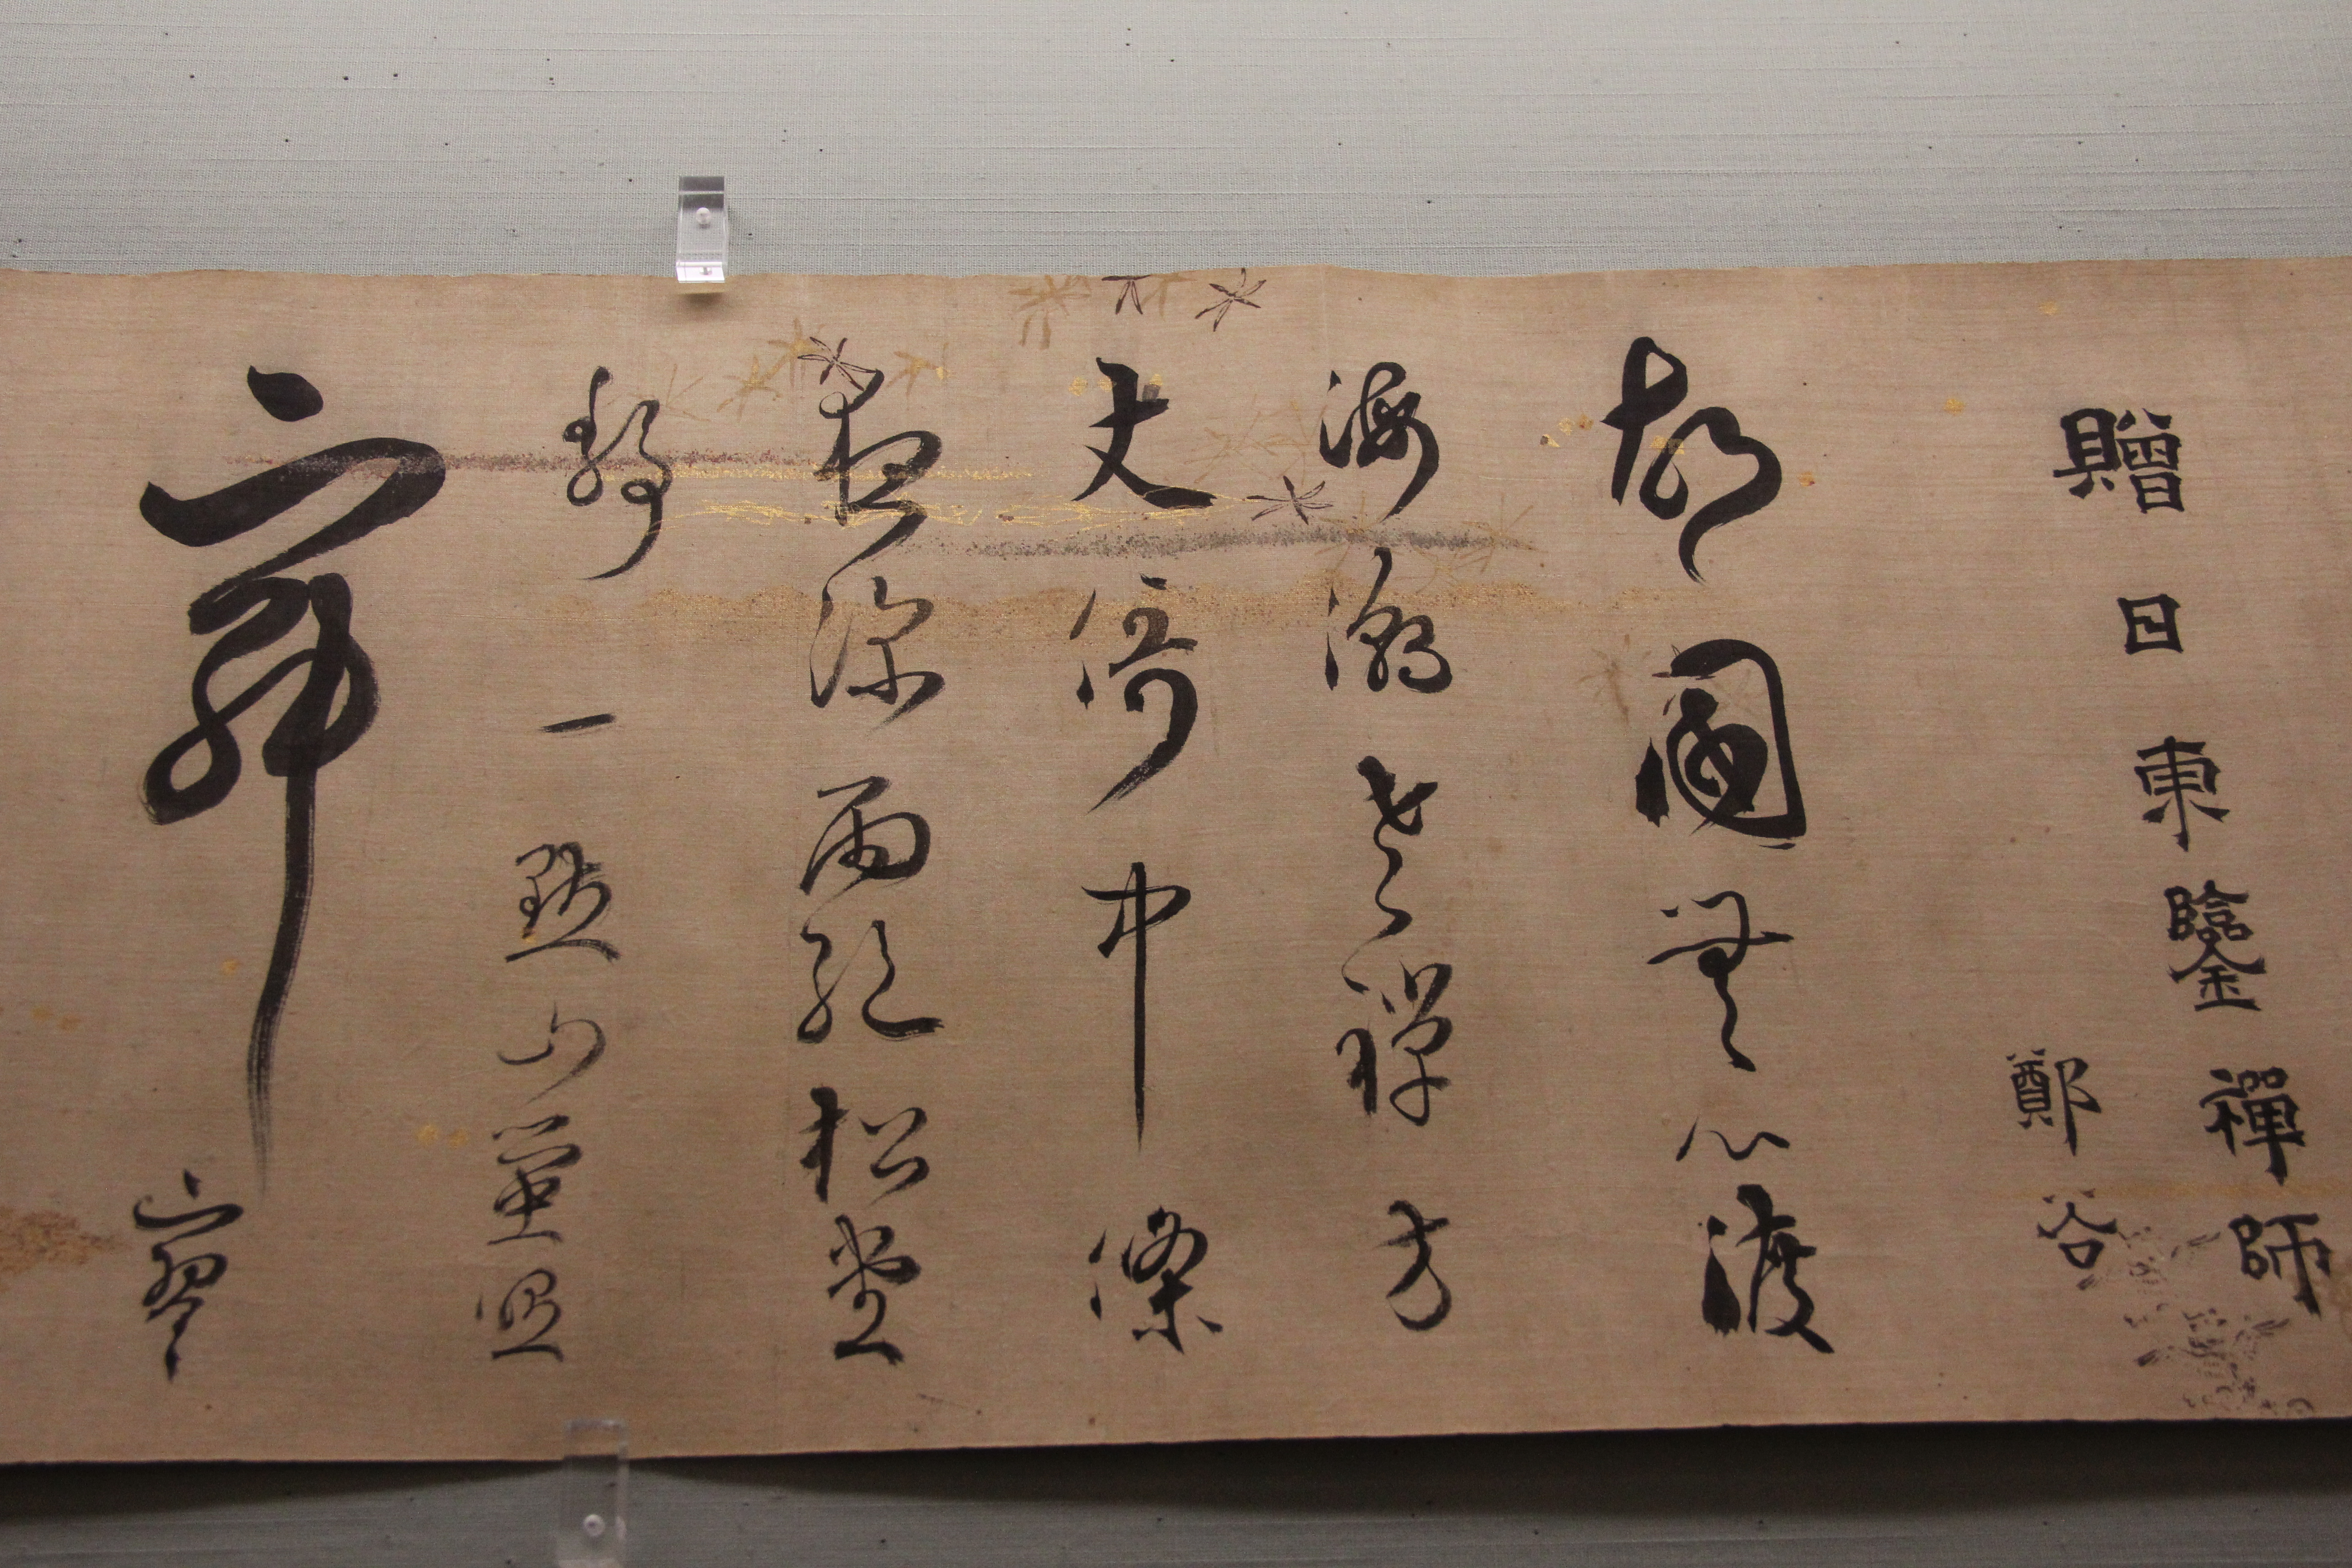 贈日東鑒禪師
鄭谷
故國無心渡
海潮老禪方
丈倚中條
夜深雨絕松堂
靜一點山螢照
寂寥